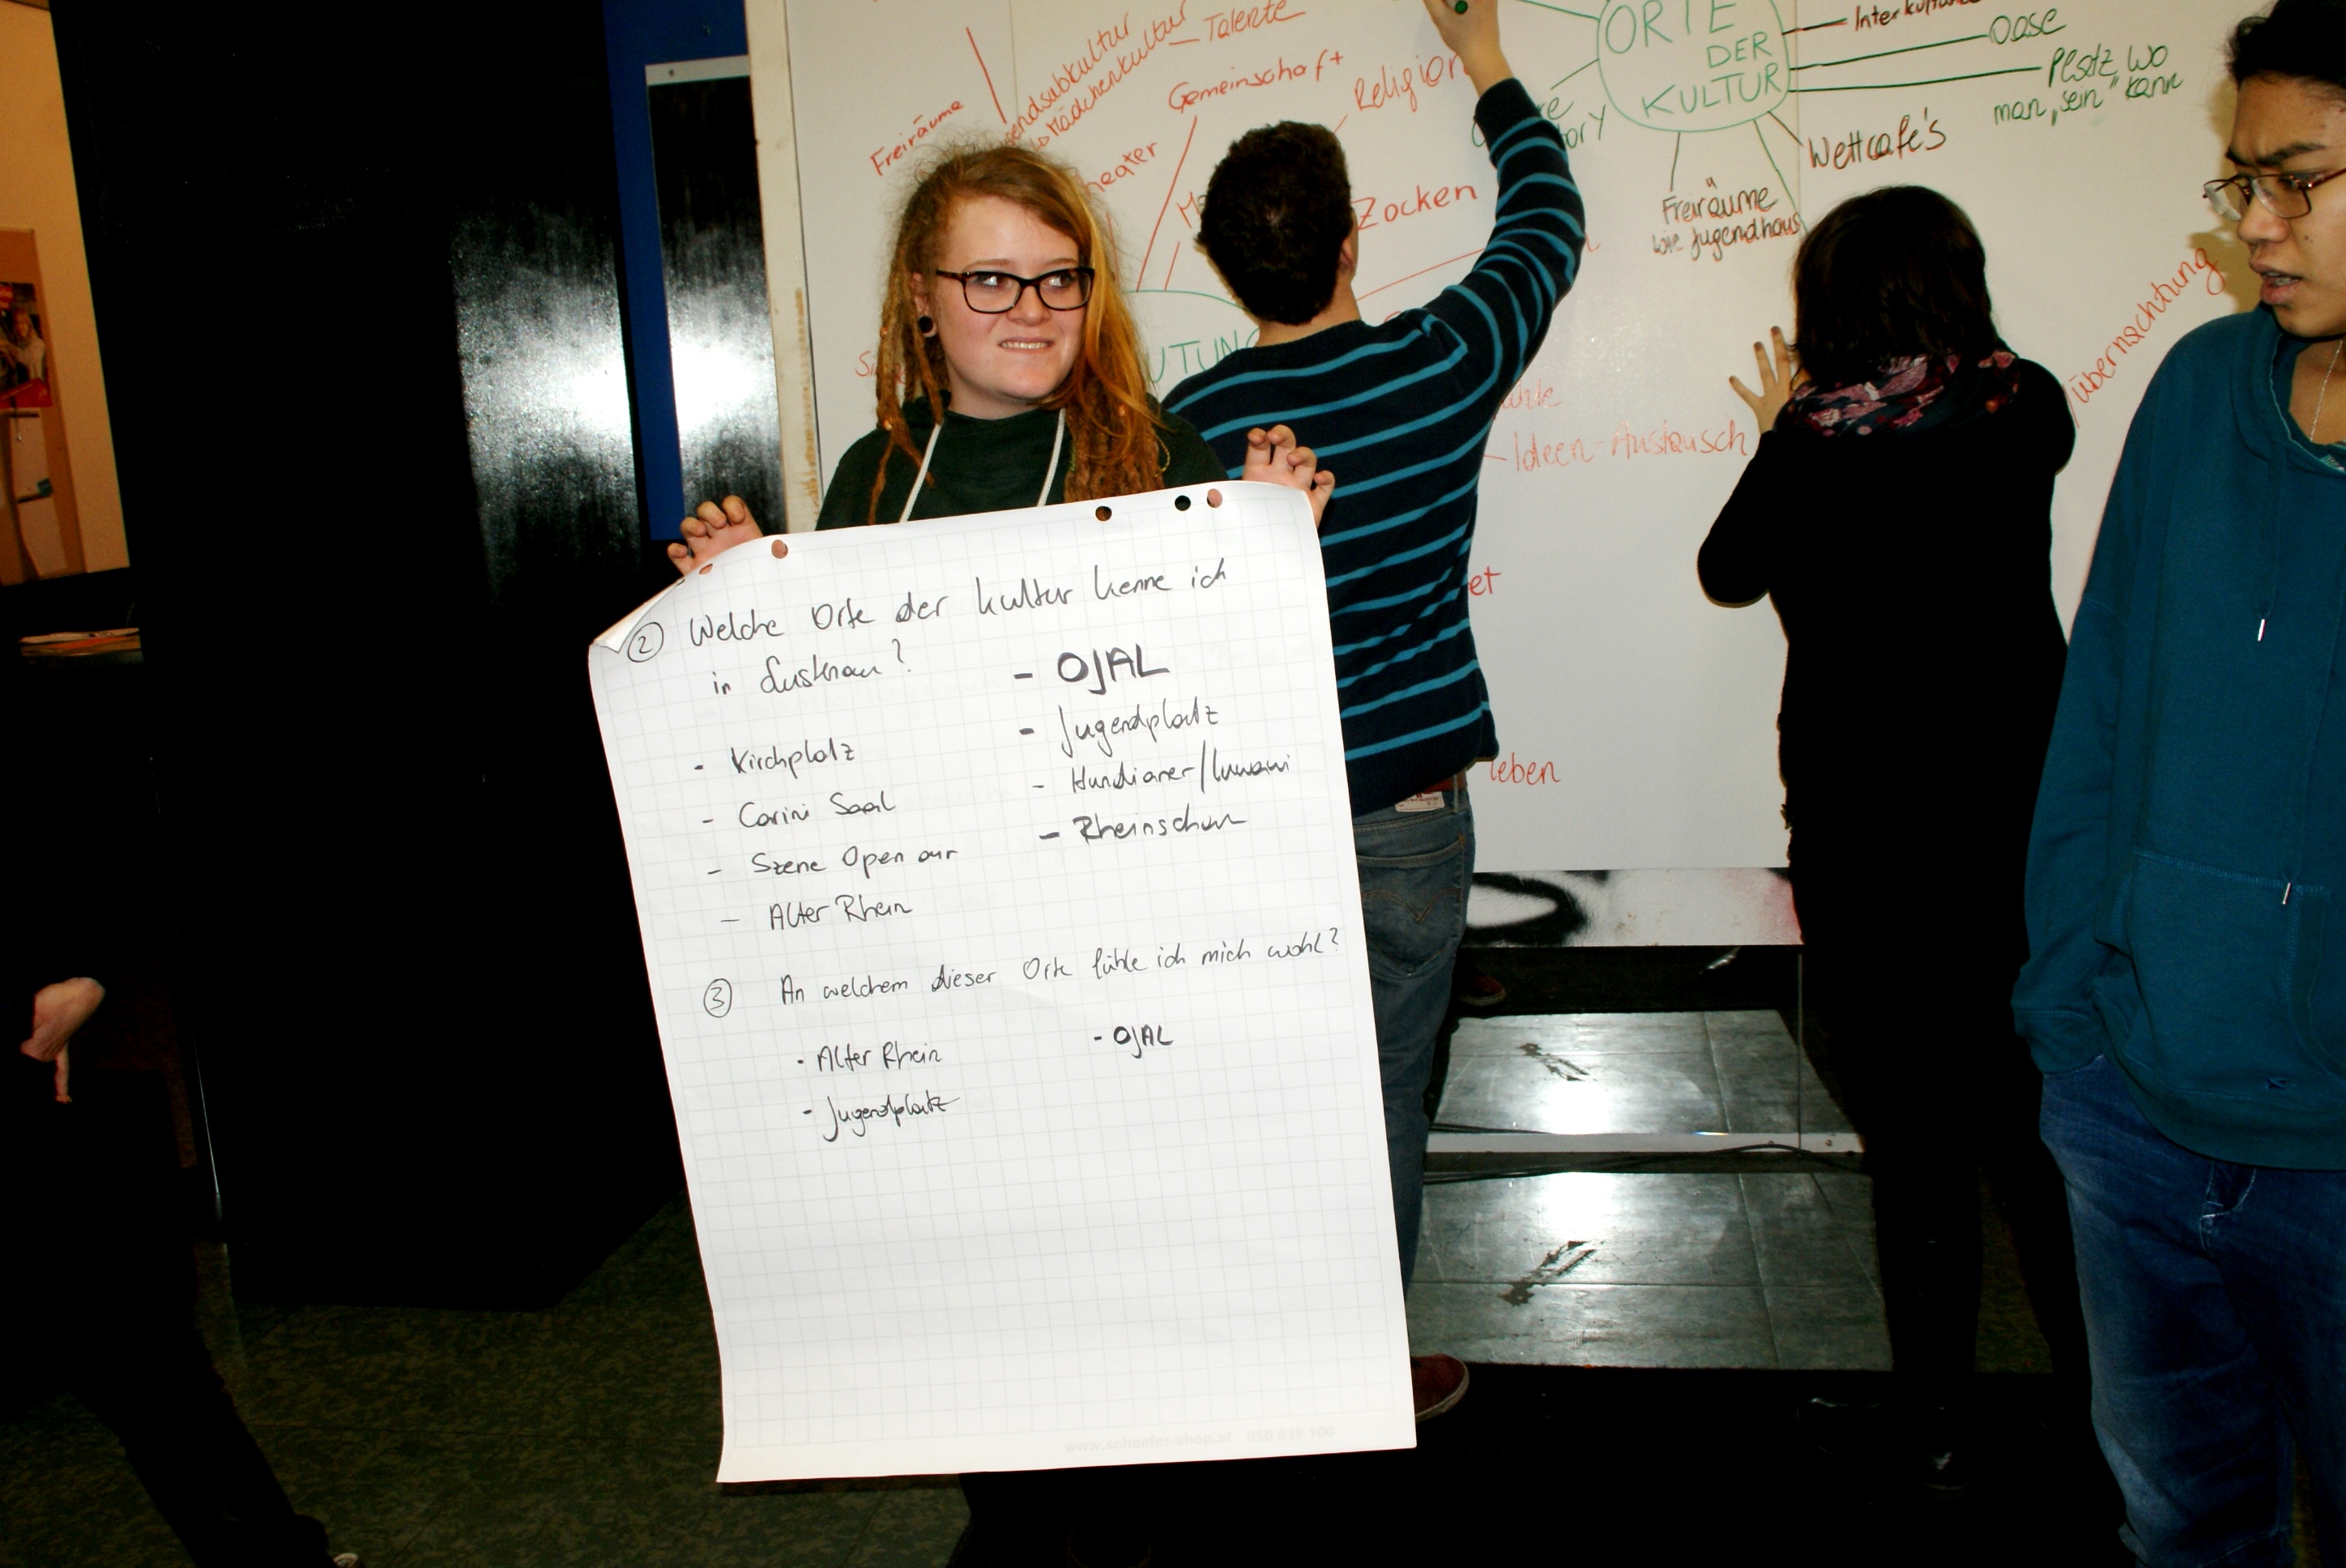 Talente
Gemeinschaft
Religion
Freiräume
Zocken
Ideen-Austausch
leben
ORTE
DER
KULTUR
Oase
Platz, wo
man „sein“ kann
Wettcafe's
Freiräume
wie Jugendhaus
Übernachtung
② Welche Orte der Kultur kenne ich
in Lustenau?
- Kirchplatz
- Carini Saal
- Szene Open air
- Alter Rhein
- OJAL
- Jugendplatz
- Hundianer/
- Rheinschau
③ An welchem dieser Orte fühle ich mich wohl?
- Alter Rhein
- Jugendplatz
- OJAL
www.schaefer-shop.at 050 639 100